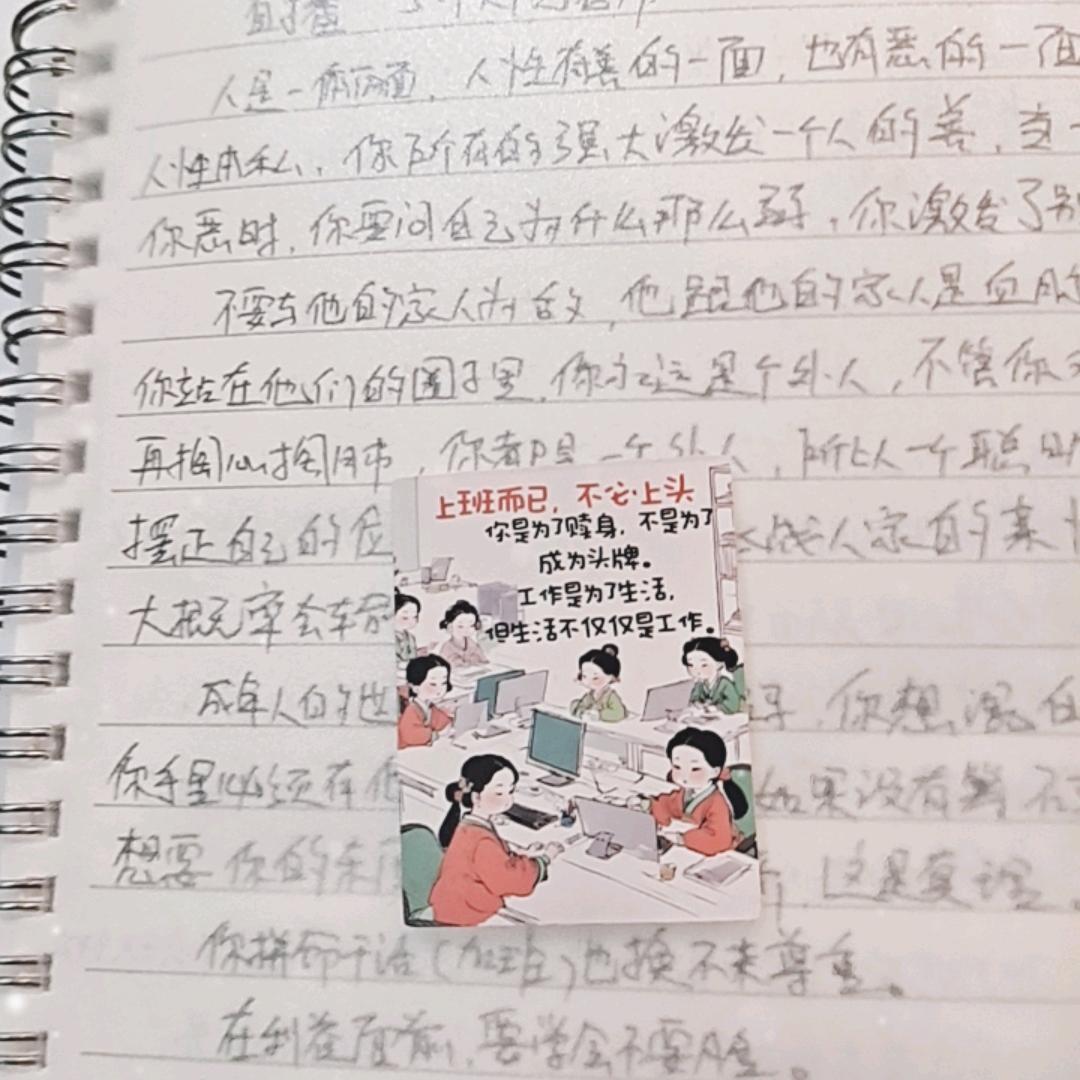 人是一体两面，人性有善的一面，也有恶的一面
人性本私，你所在的强大激发一个人的善，当一
你恶时，你要问自己为什么那么弱，你激发了别
不要与他的家人为敌，他跟他的家人是血脉
你站在他们的圈子里，你永远是个外人，不管你
再掏心掏肺，你都是一个外人，所以人一个聪明
摆正自己的位
人家的亲情
大概率会车翻
上班而已，不必上头
你是为了赎身，不是为了
成为头牌。
工作是为了生活，
但生活不仅仅是工作。
成年人的世
你想混
你手里必须有
如果没有筹
想要你的东西
，这是真理。
你拼命干活（加班）也换不来尊重。
在利益面前，要学会不要脸。